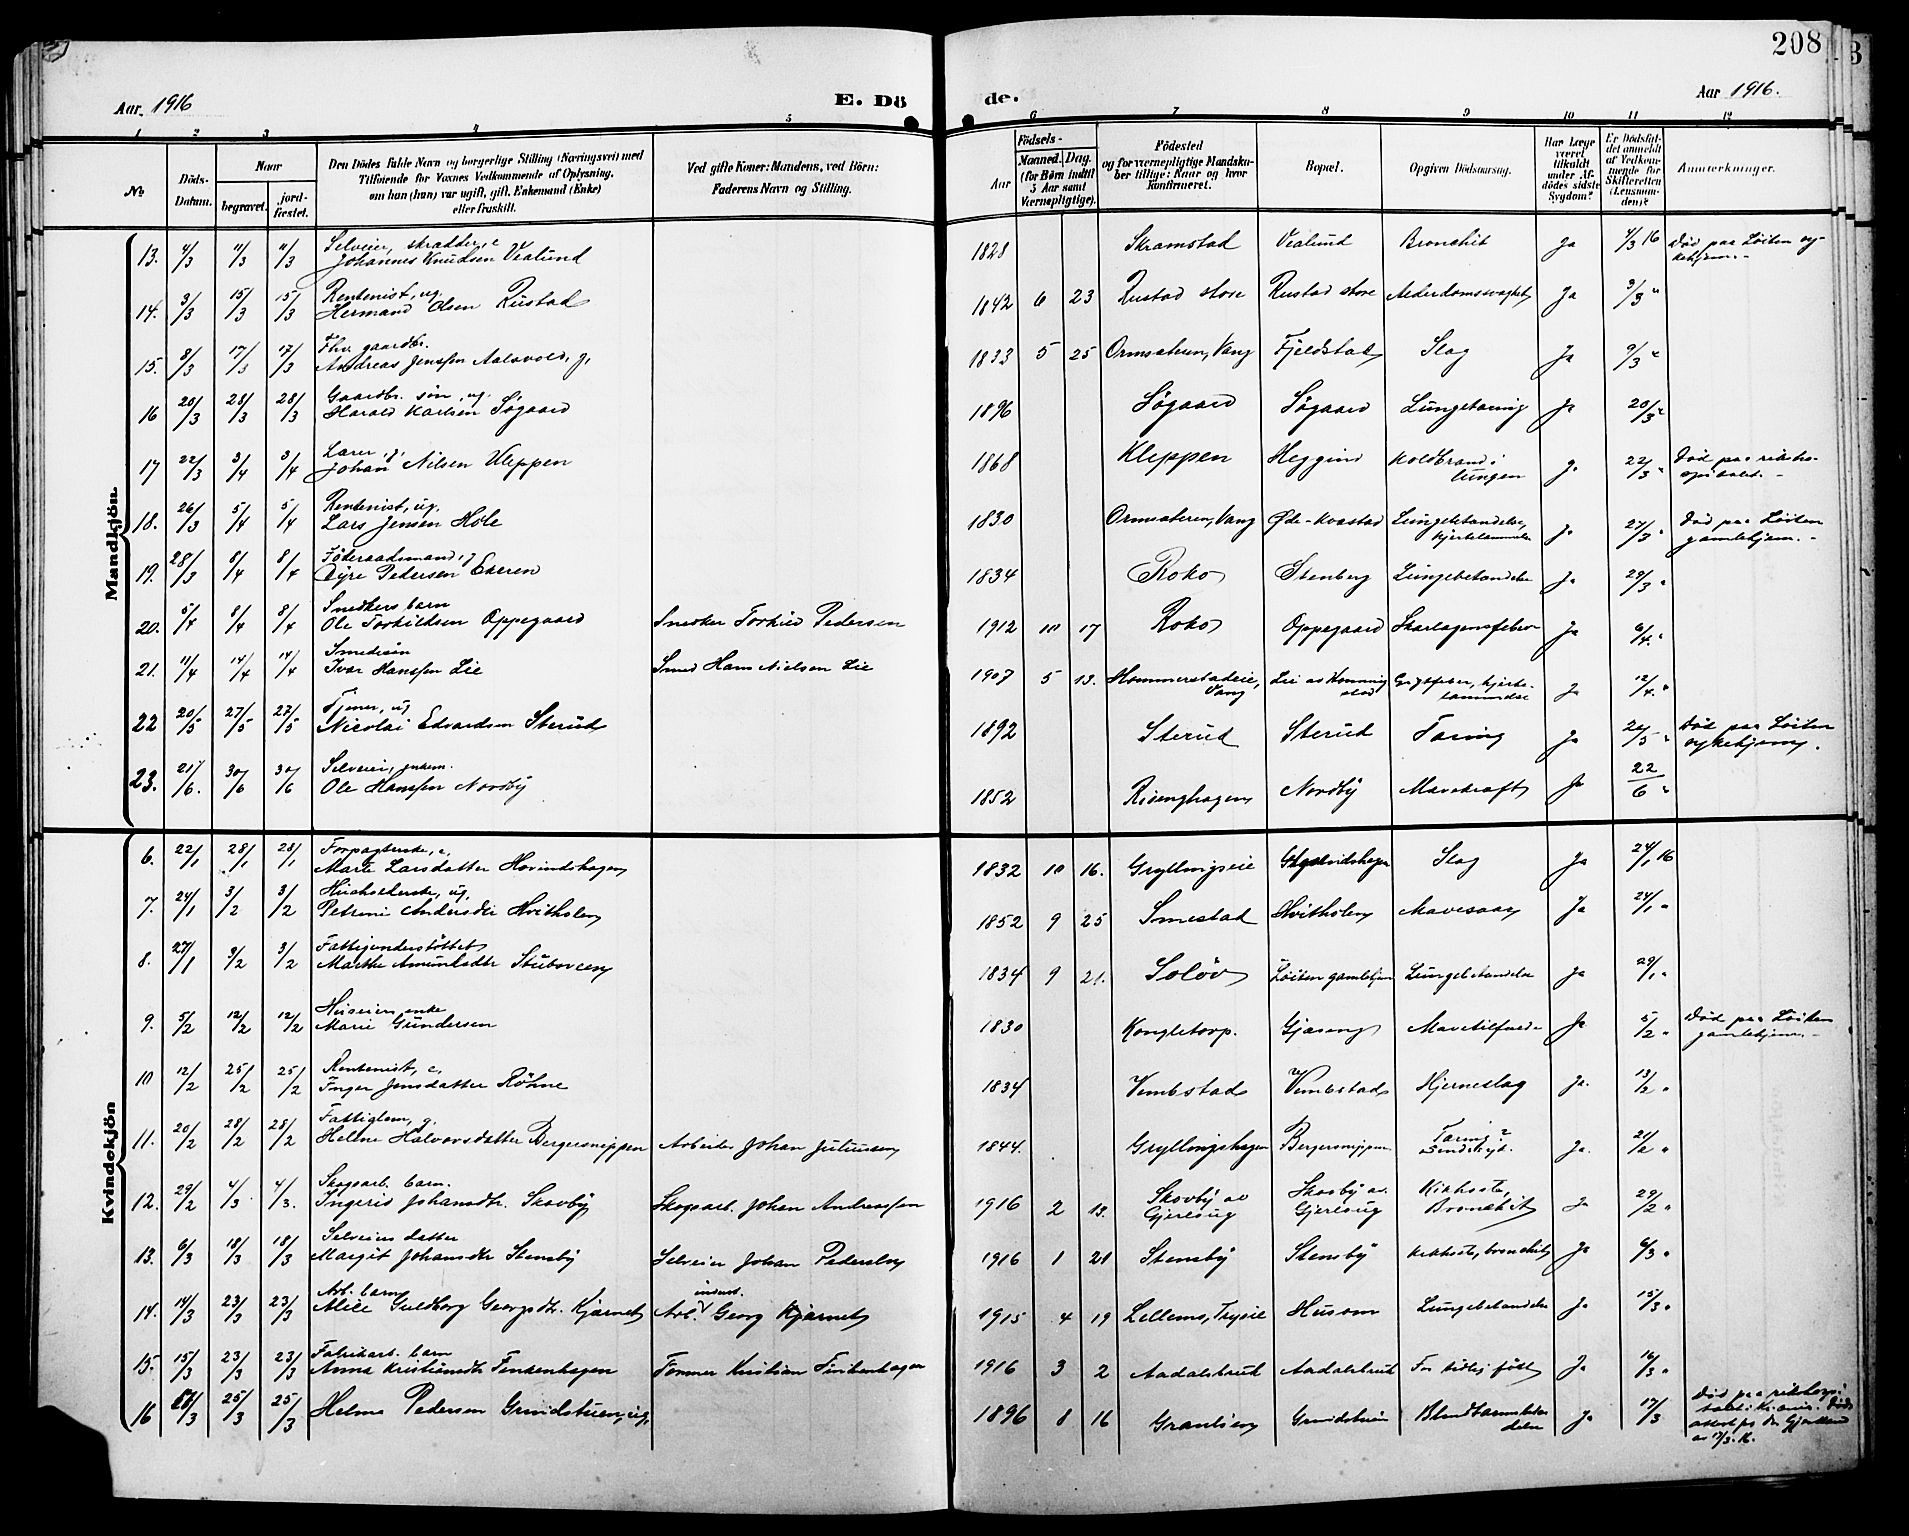 208
Aar. 1916
E. Dö
de.
Aar 1916.
1 2 3 4 5 6 7 8 9 10 11 12
No
Döds-
Datum.
Naar
begravet.
jord-
fæstet.
Den Dödes fulde Navn og borgerlige Stilling (Næringsvei) med
Tilföiende for Voxnes Vedkommende af Oplysning,
om han (hun) var ugift, gift, Enkemand (Enke)
eller fraskilt.
Ved gifte Koner: Mandens, ved Börn:
Faderens Navn og Stilling.
Födsels-
Aar
Maaned. Dag.
(for Börn indtil
5 Aar samt
Værnepligtige).
Födested
og for værnepligtige Mandsku-
ber tillige: Naar og hvor
konfirmeret.
Bopæl.
Opgiven Dödsaarsag.
Har Læge
været
tilkaldt
under Af-
dödes sidste
Sygdom?
Er Dödsfal-
det anmeldt
af Vedkom-
mende for
Skifteretten
(Lensman-
den)?
Anmerkninger.
Mandkjön.
13. 4/3 11/3 11/3 Selveier, skrædder, e
Johannes Knudsen Vealund 1828 Skramstad Vealund Bronchit Ja 4/3 16 Død paa Løiten sy-
kehjem.
14. 3/3 15/3 15/3 Rentenist, ug.
Hermand Olsen Rustad 1842 6 23 Rustad store Rustad store Alderdomssvaghet Ja 3/3 "
15. 8/3 17/3 17/3 Fhv. gaardbr.
Andreas Jenssen Aalavold, g. 1833 5 25 Ormsæteren, Vang Fjeldstad Slag Ja 9/3 "
16 20/3 28/3 28/3 Gaardbr. søn, ug.
Harald Karlsen Søgaard 1896 Søgaard Søgaard Lungetæring Ja 20/3 "
17 22/3 3/4 3/4 Lærer, g,
Johan Nilsen Kleppen 1868 Kleppen Heggind Koldbrand i
lungen Ja 22/3 " Død paa rikshos-
pitalet.
18. 26/3 5/4 5/4 Rentenist, ug.
Lars Jensen Hole 1830 Ormsæteren, Vang Øde-Kvastad Lungebetændelse,
hjertelammelse Ja 27/3 " Død paa Løiten
gamlehjem.
19. 28/3 8/4 8/4 Føderaadsmand, g
Dyre Pedersen Ekeren 1834 Roko Stenberg Lungebetændelse Ja 29/3 "
20. 5/4 8/4 8/4 Snedkers barn
Ole Torkildsen Oppegaard Snedker Torkild Pedersen 1912 10 17 Roko Oppegaard Skarlagensfeber Ja 6/4 "
21. 11/4 14/4 14/4 Smedsøn
Ivar Hanssen Lie Smed Hans Nielsen Lie 1907 5 13. Hommerstadeie,
Vang Gigtfeber, hjerte-
lammelse Ja 12/4 "
22 20/5 27/5 27/5 Tjener, ug
Nicolai Edvardsen Sterud 1892 Sterud Sterud Tæring Ja 20/5 " Død paa Løiten
sykehjem.
23. 21/6. 30/6 30/6 Selveier, enkem.
Ole Hanssen Nordby 1852 Risenghagen Nordby Mavekræft Ja 22/6 "
Kvindekjön
6. 22/1 28/1 28/1 Forpagterske, e,
Marte Larsdatter Hovindshagen 1832 10 16. Gryllingseie Slag Ja 24/1 16
7. 24/1 3/2 3/2 Husholderske, ug,
Petrine Andersdtr Hvitholen 1852 9 25 Smestad Hvitholen Mavesaar Ja 24/1 "
8. 27/1 3/2 3/2 Fattigunderstøttet
Marthe Amundsdtr Stubsveen 1834 9 21. Soløv Løiten gamlehjem Lungebetændelse Ja 29/1 "
9. 5/2 12/2 12/2 Huseier enke
Marie Gundersen 1830 Kongletorp. Gjøseng Mavetilfælde Ja 5/2 " Død paa Løiten
gamlehjem.
10 12/2 25/2 25/2 Rentenist, e,
Inger Jensdatter Røhne 1834 Vembstad Vembstad Hjerneslag Ja. 13/2 "
11. 20/2 28/2 28/2 Fattiglem, g.
Helene Halvorsdatter Bergersneppen Arbeider Johan Juliussen 1844. Gryllingshagen Bergersneppen Tæring? Ja. 21/2 "
12. 29/2 4/3 4/3. Skogsarb. barn.
Ingerid Johansdtr. Skovby Skogsarb. Johan Andreassen 1916 2 13. Skovby av
Gjerlsug Skovby av.
Gjerlsug Kikhoste,
Bronchit Ja 29/2 "
13. 6/3 18/3 18/3 Selveiers datter
Margit Johansdtr Stensby Selveier Johan Pedersen 1916 1 21 Stensby Stensby Kikhoste, bronchit Ja 6/3 "
14. 14/3 23/3 23/3 Arb. barn
Alice Guldborg Georgsdtr. Kjærnet industr.
Arb. Georg Kjærnet 1915 4 19 Husom Lungebetændelse Ja 15/3 "
15. 15/3 23/3 23/3 Fabrikarb. barn
Anna Kristiansdtr Finkenhagen Former Kristian Finkenhagen 1916 3 2 Aadalsbrud Aadalsbrud For tidlig født Ja 16/3 "
16 25/3 25/3 Helma Pedersen Grundstuen, ug, 1896 8 16 Granlien Grundstuen Blindtarmsbetæn-
delse Ja 17/3 Død paa rikshospi-
talet i Kr.ania.